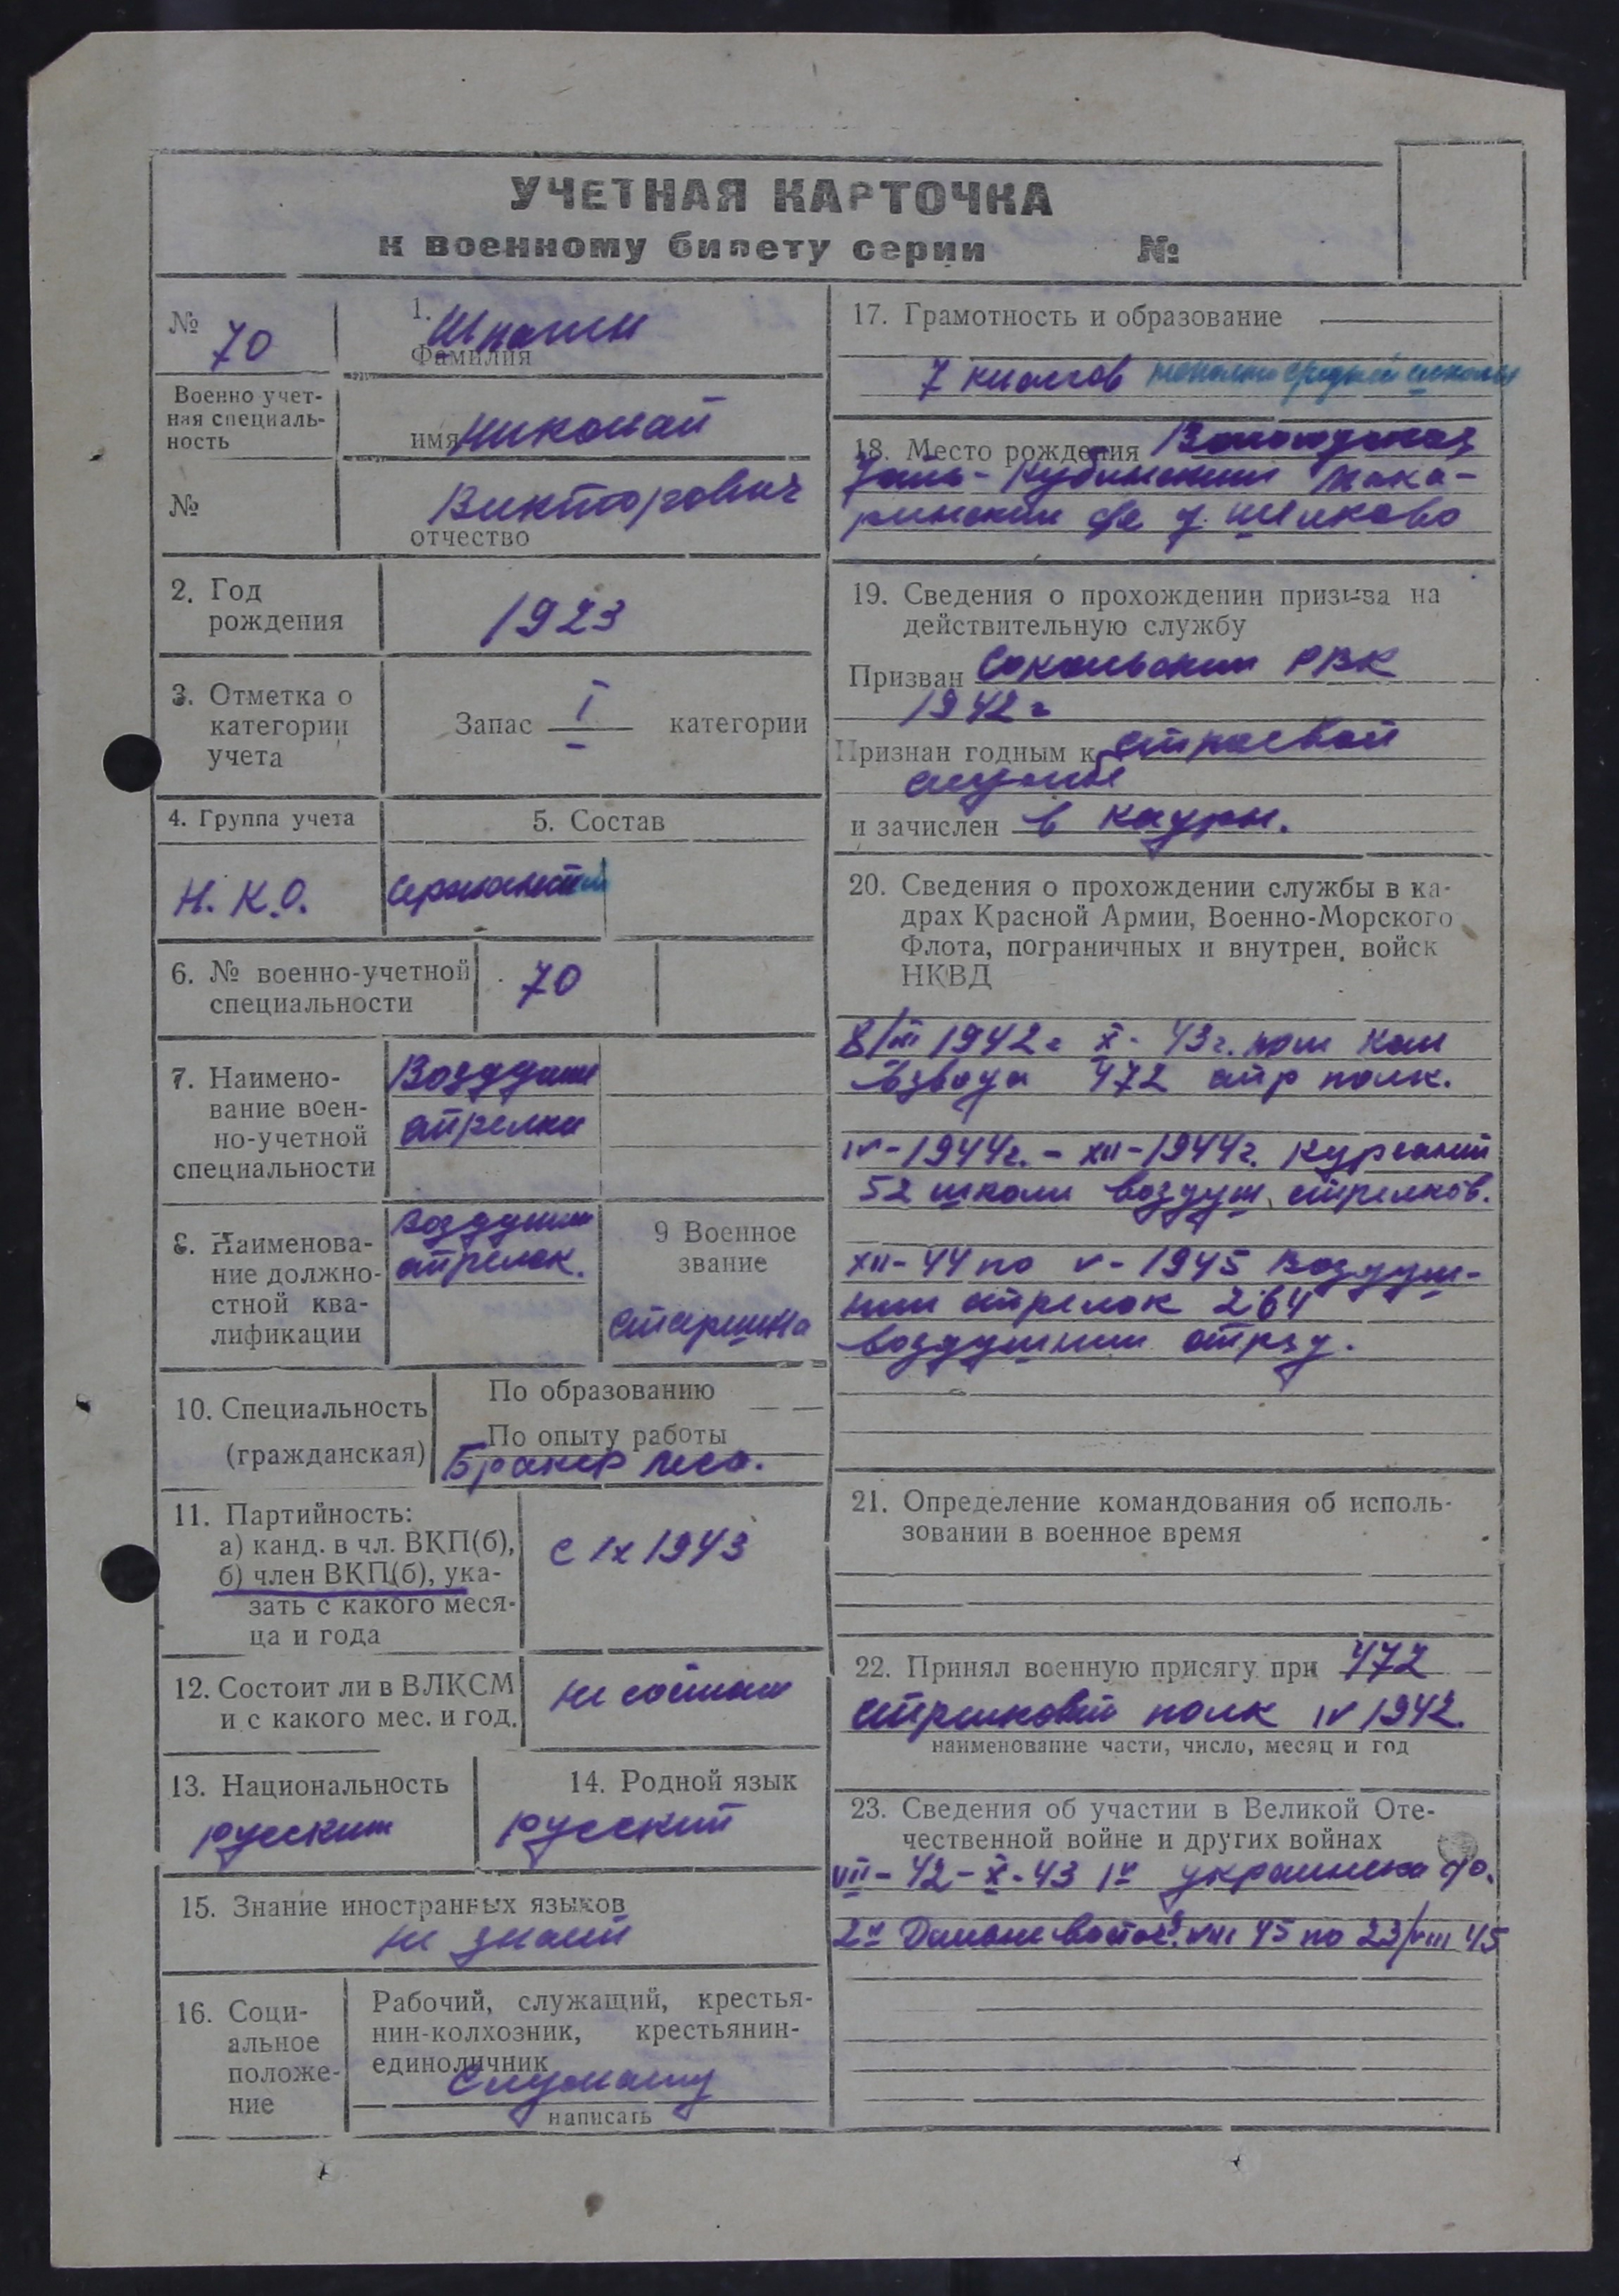 УЧЕТНАЯ КАРТОЧКА
к военному билету серии №
№ 70
1. Шпагин
Фамилия
Военно учет-
ная специаль-
ность
имя Николай
№
Викторович
отчество
2. Год
рождения
1923
3. Отметка о
категории
учета
Запас I категории
4. Группа учета
5. Состав
Н.К.О.
сержантский
6. № военно-учетной
специальности
70
7. Наимено-
вание воен-
но-учетной
специальности
Воздушн
стрелки
8. Наименова-
ние должно-
стной ква-
лификации
Воздушн
стрелок.
9 Военное
звание
старшина
10. Специальность
(гражданская)
По образованию
По опыту работы
Бракер леса.
11. Партийность:
а) канд. в чл. ВКП(б),
б) член ВКП(б), ука-
зать с какого меся-
ца и года
с IX 1943
12. Состоит ли в ВЛКСМ
и с какого мес. и год.
не состоит
13. Национальность
русский
14. Родной язык
русский
15. Знание иностранных языков
не знает
16. Соци-
альное
положе-
ние
Рабочий, служащий, крестья-
нин-колхозник, крестьянин-
единоличник
служащ
написать
17. Грамотность и образование
7 классов неполн средней школы
18. Место рождения Вологодская
Усть-Кубинский
с/с д.
19. Сведения о прохождении призыва на
действительную службу
Призван Сокольским РВК
1942 г
Признан годным к строевой
службе
и зачислен в кадры.
20. Сведения о прохождении службы в ка-
драх Красной Армии, Военно-Морского
Флота, пограничных и внутрен. войск
НКВД
8/III 1942 г X-43 г. пом ком
взвода 472 стр полк.
IV-1944г. - XII-1944г. курсант
52 школы воздуш. стрелков.
XII-44 по V-1945 Воздуш-
ный стрелок 264
воздушный
21. Определение командования об исполь-
зовании в военное время
22. Принял военную присягу при 472
стрелковый полк IV 1942.
наименование части, число, месяц и год
23. Сведения об участии в Великой Оте-
чественной войне и других войнах
VII-42-X-43 1й украински фр.
2й Дальневосточ. VIII 45 по 23/VIII 45